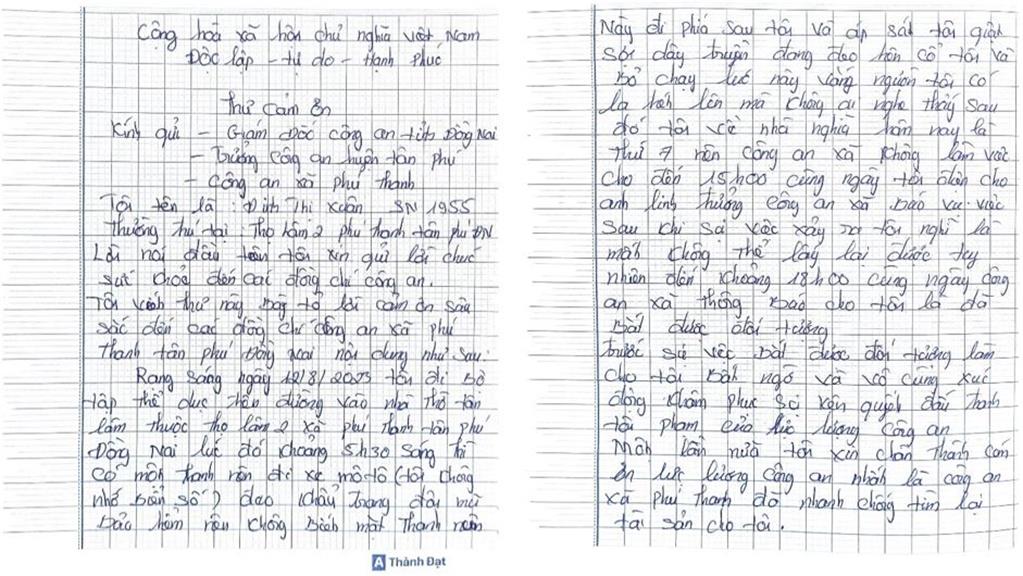 Cộng hoà xã hôn chủ nghĩa việt Nam
Độc lập - tự do - Hạnh phúc
Thư Cảm ơn
Kính gửi - Giám Đốc công an tỉnh Đồng Nai
- Trưởng công an huyện tân phú
- công an xã phú thanh
Tôi tên là : Đinh Thị Xuân SN 1955
Thường thú tại : Thọ lâm 2 phú thanh tân phú ĐN
Lời nói đầu tiên tôi xin gửi lời chúc
sức khoẻ đến các đồng chí công an.
Tôi viết thư này bày tỏ lời cảm ơn sâu
sắc đến các đồng chí công an xã phú
thanh tân phú Đồng Nai nội dung như sau:
Rạng sáng ngày 12/8/2023 tôi đi bộ
tập thể dục trên đường vào nhà thờ tân
lâm thuộc thọ lâm 2 xã phú thanh tân phú
Đồng Nai lúc đó khoảng 5h30 sáng thì
có một thanh niên đi xe mô-tô (tôi không
nhớ biển số) đeo khẩu trang đội mũ
bảo hiểm nên không biết mặt Thanh niên
Này đi phía sau tôi và áp sát tôi giật
sợi dây truyền đang đeo trên cổ tôi và
bỏ chạy lúc này vắng người tôi có
la hét lên mà không ai nghe thấy sau
đó tôi về nhà nghĩa hôm nay là
thứ 7 nên công an xã không làm việc
cho đến 15h00 cùng ngày tôi đến cho
anh linh trưởng công an xã báo vụ việc
sau khi sự việc xảy ra tôi nghĩ là
mất không thể lấy lại được tuy
nhiên đến khoảng 18h00 cùng ngày công
an xã thông báo cho tôi là đã
bắt được đối tượng
trước sự việc bắt được đối tượng làm
cho tôi bất ngờ và vô cùng xúc
động khâm phục sự kiên quyết đấu tranh
tội phạm của lực lượng công an
Một lần nữa tôi xin chân thành cảm
ơn lực lượng công an nhất là công an
xã phú thanh đã nhanh chóng tìm lại
tài sản cho tôi.
A Thành Đạt